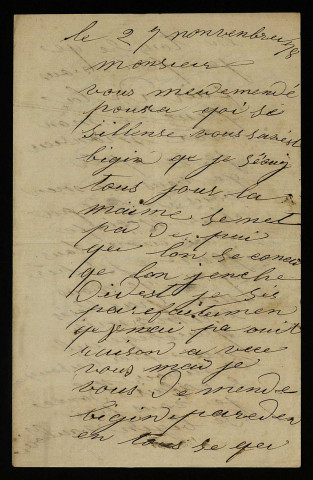 le 27 nonvenbre 78
monsieur
vous me demendé
poura qoi se
sillense vous savest
bigin qe je séouij
tous jous la
maime se net
pa de pui
qu lon se conai
qe lon jenche
didest je sis
parefaitumen
qe nai pa out
raison a vec
vous mai je
vous demende
bigin pareden
en tous se qu